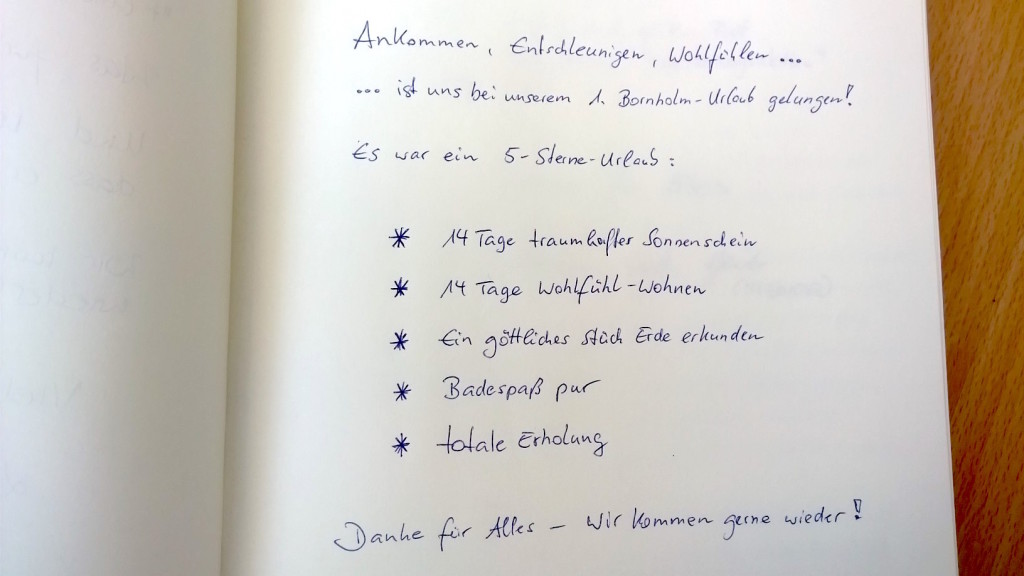 Ankommen, Entschleunigen, Wohlfühlen ...
... ist uns bei unserem 1. Bornholm-Urlaub gelungen!
Es war ein 5-Sterne-Urlaub:
* 14 Tage traumhafter Sonnenschein
* 14 Tage Wohlfühl-Wohnen
* Ein göttliches Stück Erde erkunden
* Badespaß pur
* totale Erholung
Danke für Alles – Wir kommen gerne wieder!